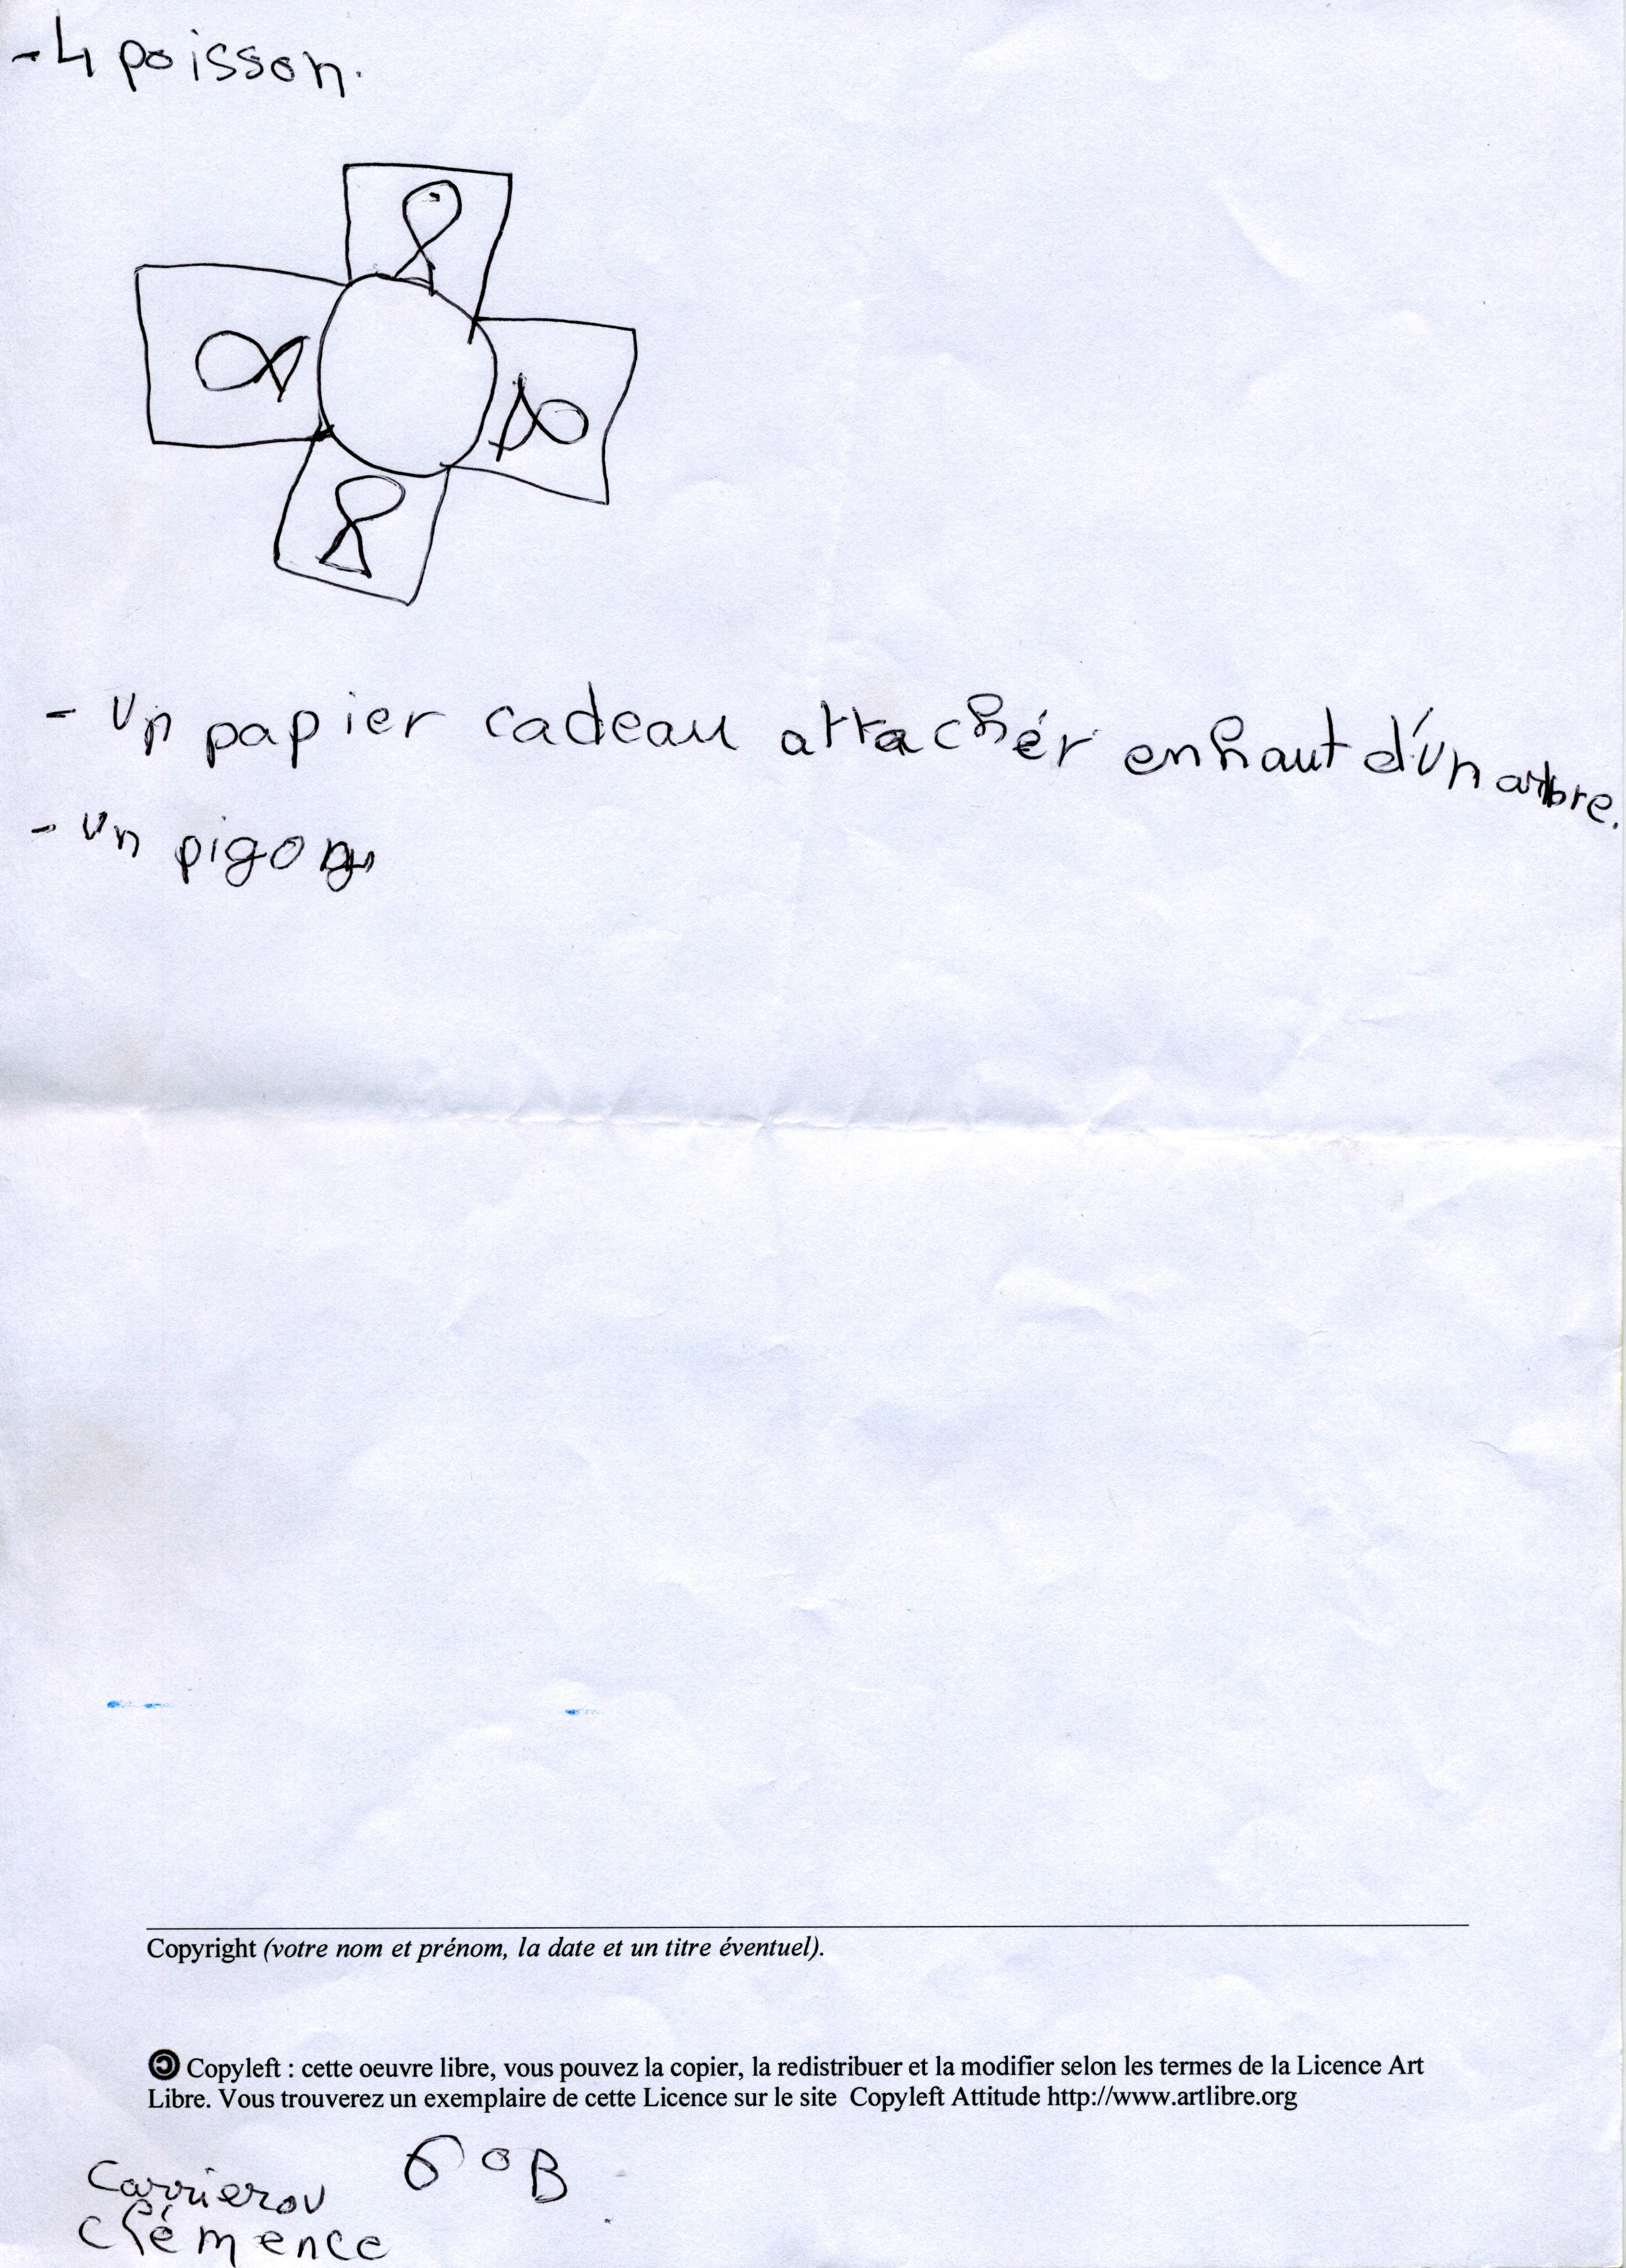 - 4 poisson.
- Un papier cadeau attachér enhaut d'Un arbre.
- Un pigon
Copyright (votre nom et prénom, la date et un titre éventuel).
Copyleft : cette oeuvre libre, vous pouvez la copier, la redistribuer et la modifier selon les termes de la Licence Art
Libre. Vous trouverez un exemplaire de cette Licence sur le site Copyleft Attitude http://www.artlibre.org
6°B
Carrierou
Clémence